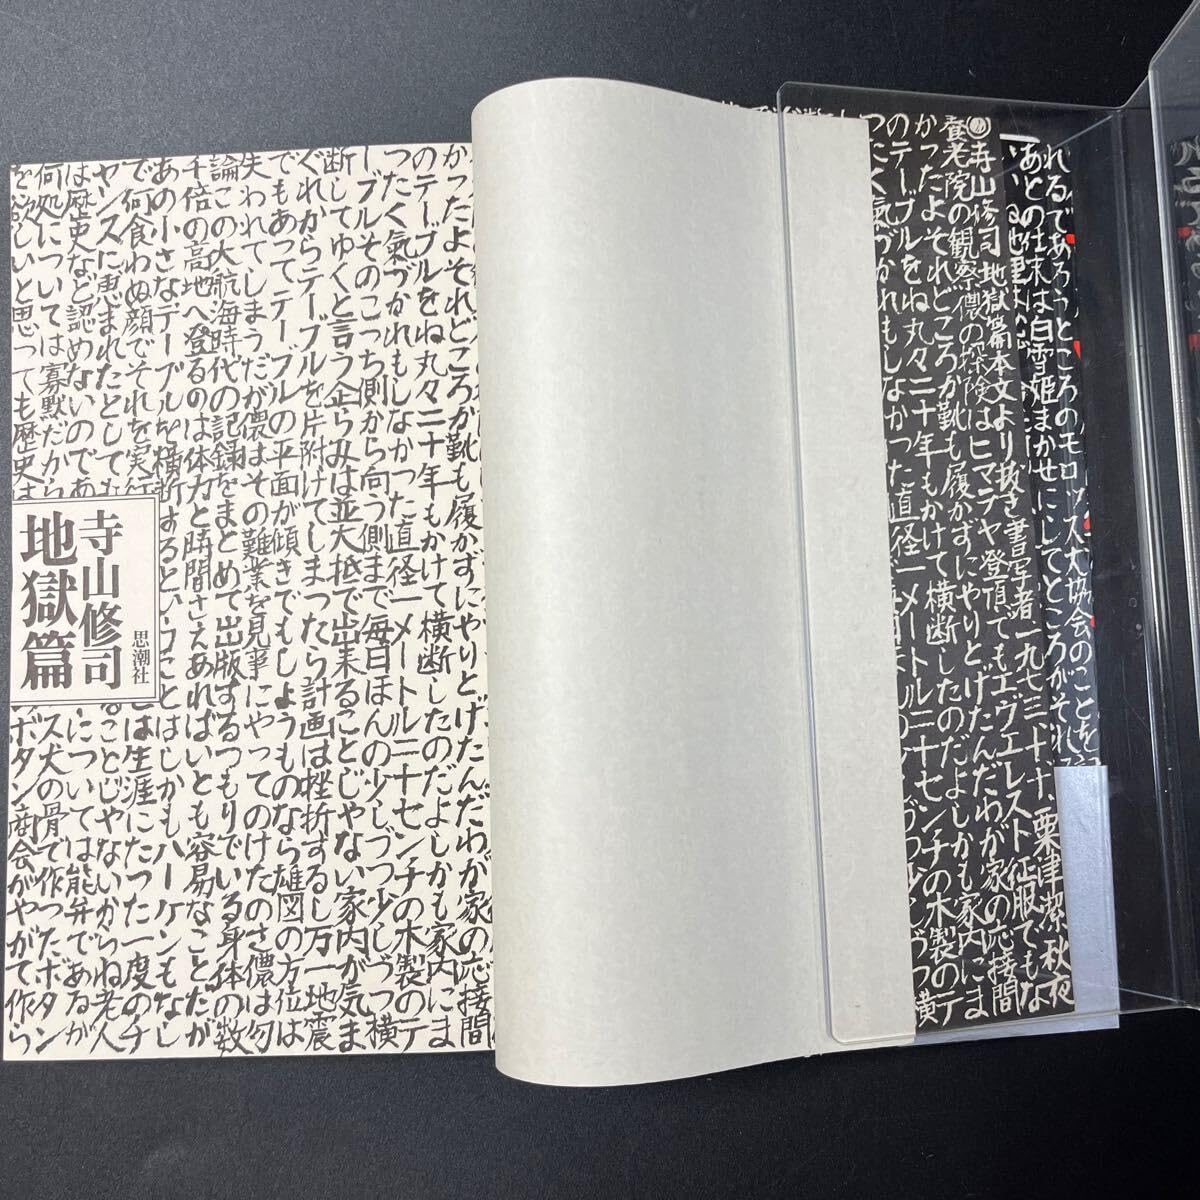 れるであろうところのモロッス犬協会のことを
あとの仕末は白雪姫まかせにしてところがそれ
寺山修司 地獄篇本文より抜き書写者一九七三、十、粟津潔 秋夜
養老院の観察儂の探険はヒマラヤ登頂でもエヴェレスト征服でもな
かったよそれどころか靴も履かずにやりとげたんだわが家の応接間
のテーブルをね丸々二十年もかけて横断したのだよしかも家内にま
つたく氣づかれもしなかった直径一メートル二十センチの木製のテ
かったよそれどころか靴も履かずにやりとげたんだわが家の応接間
のテーブルをね丸々二十年もかけて横断したのだよしかも家内にま
つたく氣づかれもしなかった直径一メートル二十センチの木製のテ
ーブルそのこっち側から向う側まで毎日ほんの少しづつ少しづつ横
断してゆくと言う企らみは並大抵で出来ることじゃない家内が気ま
ぐれからテーブルを片附けてしまったら計画は挫折するし万一地震
でもあってテーブルの平面が傾きでもしようものなら雄図の方位は
失われてしまうだが儂はその難業を見事にやってのけたのさ儂は勿
論この大航海時代の記録をまとめて出版するつもりでいる身体の数
千倍の高地へ登るのは体力と時間さえあればいとも容易なことだが
あの小さなテーブルを横断するということはしかもハーケンもなし
で何食わぬ顔でそれを実行 とは生涯にたった一度のチ
ャンスに恵まれたとしても ることじゃないからね老人
は歴史など認めないのであ については能弁であるが
何処については寡黙だから ス犬の骨で作ったボタン
を欲しいと思っても歴史は ボタン商会がやがて作ら
思潮社
寺山修司
地獄篇